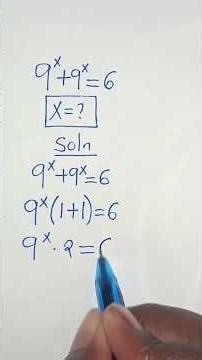 9ˣ+9ˣ=6
X=?
Soln
9ˣ+9ˣ=6
9ˣ(1+1)=6
9ˣ·2=6